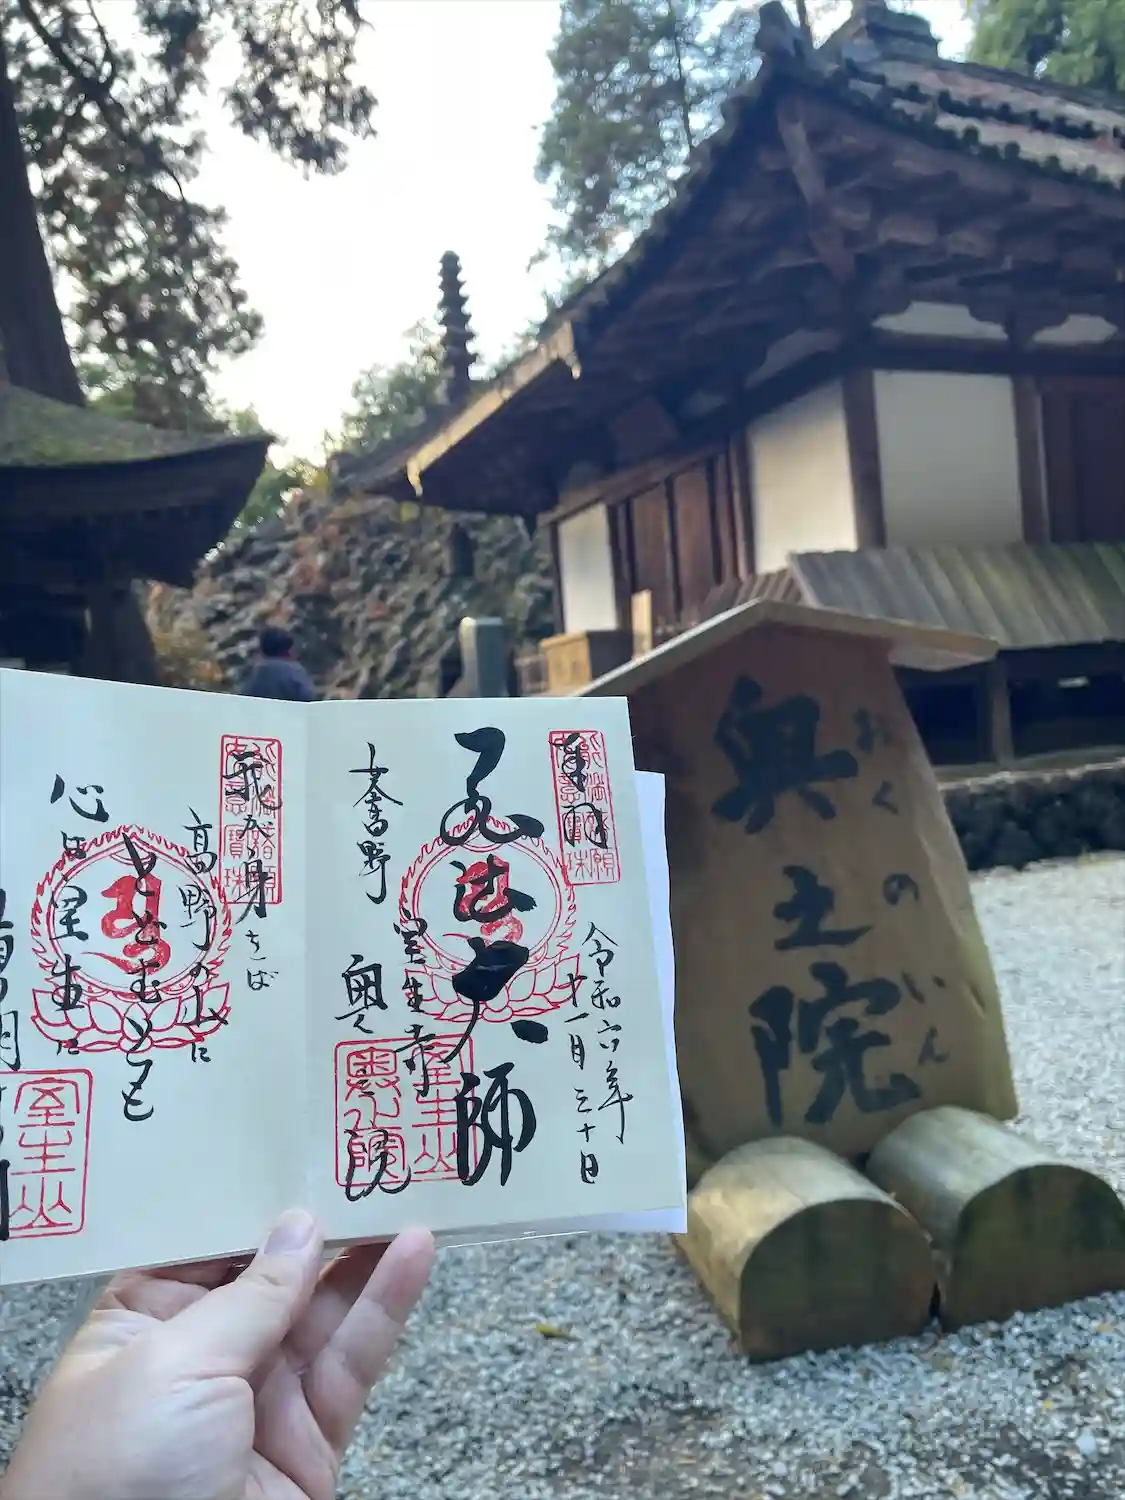 奉拝
令和六年
十一月三十日
弘法大師
女人高野
室生寺
奥之院
我が身をば
高野の山に
とどむとも
心は室生に
有明の月
室生山
奥之院
おくのいん